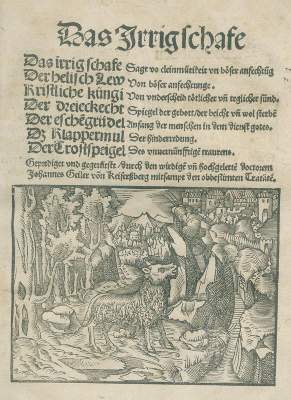 Das Irrig schafe
Das irrig schafe Sagt vō cleinmütikeit vn̄ böser anfechtūg
Der helisch Lew Von böser anfechtunge.
Kristliche küngi Von vnderscheid tötlicher vn̄ teglicher sünd.
Der dreieckecht Spiegel der gebott/der beicht vn̄ wol sterbē
Der eschēgrüdel Anfang der menschen in dem dienst gotes.
Dz Klappermul Der hinderredung.
Der Trostspeigel Des vnuernünffrigē traurens.
Geprediget vnd gedeütscht durch den wirdigē vn̄ hochgelertē doctorem
Johannes Geiler von Keisersberg mitsampt den obbestimten Tratatē.